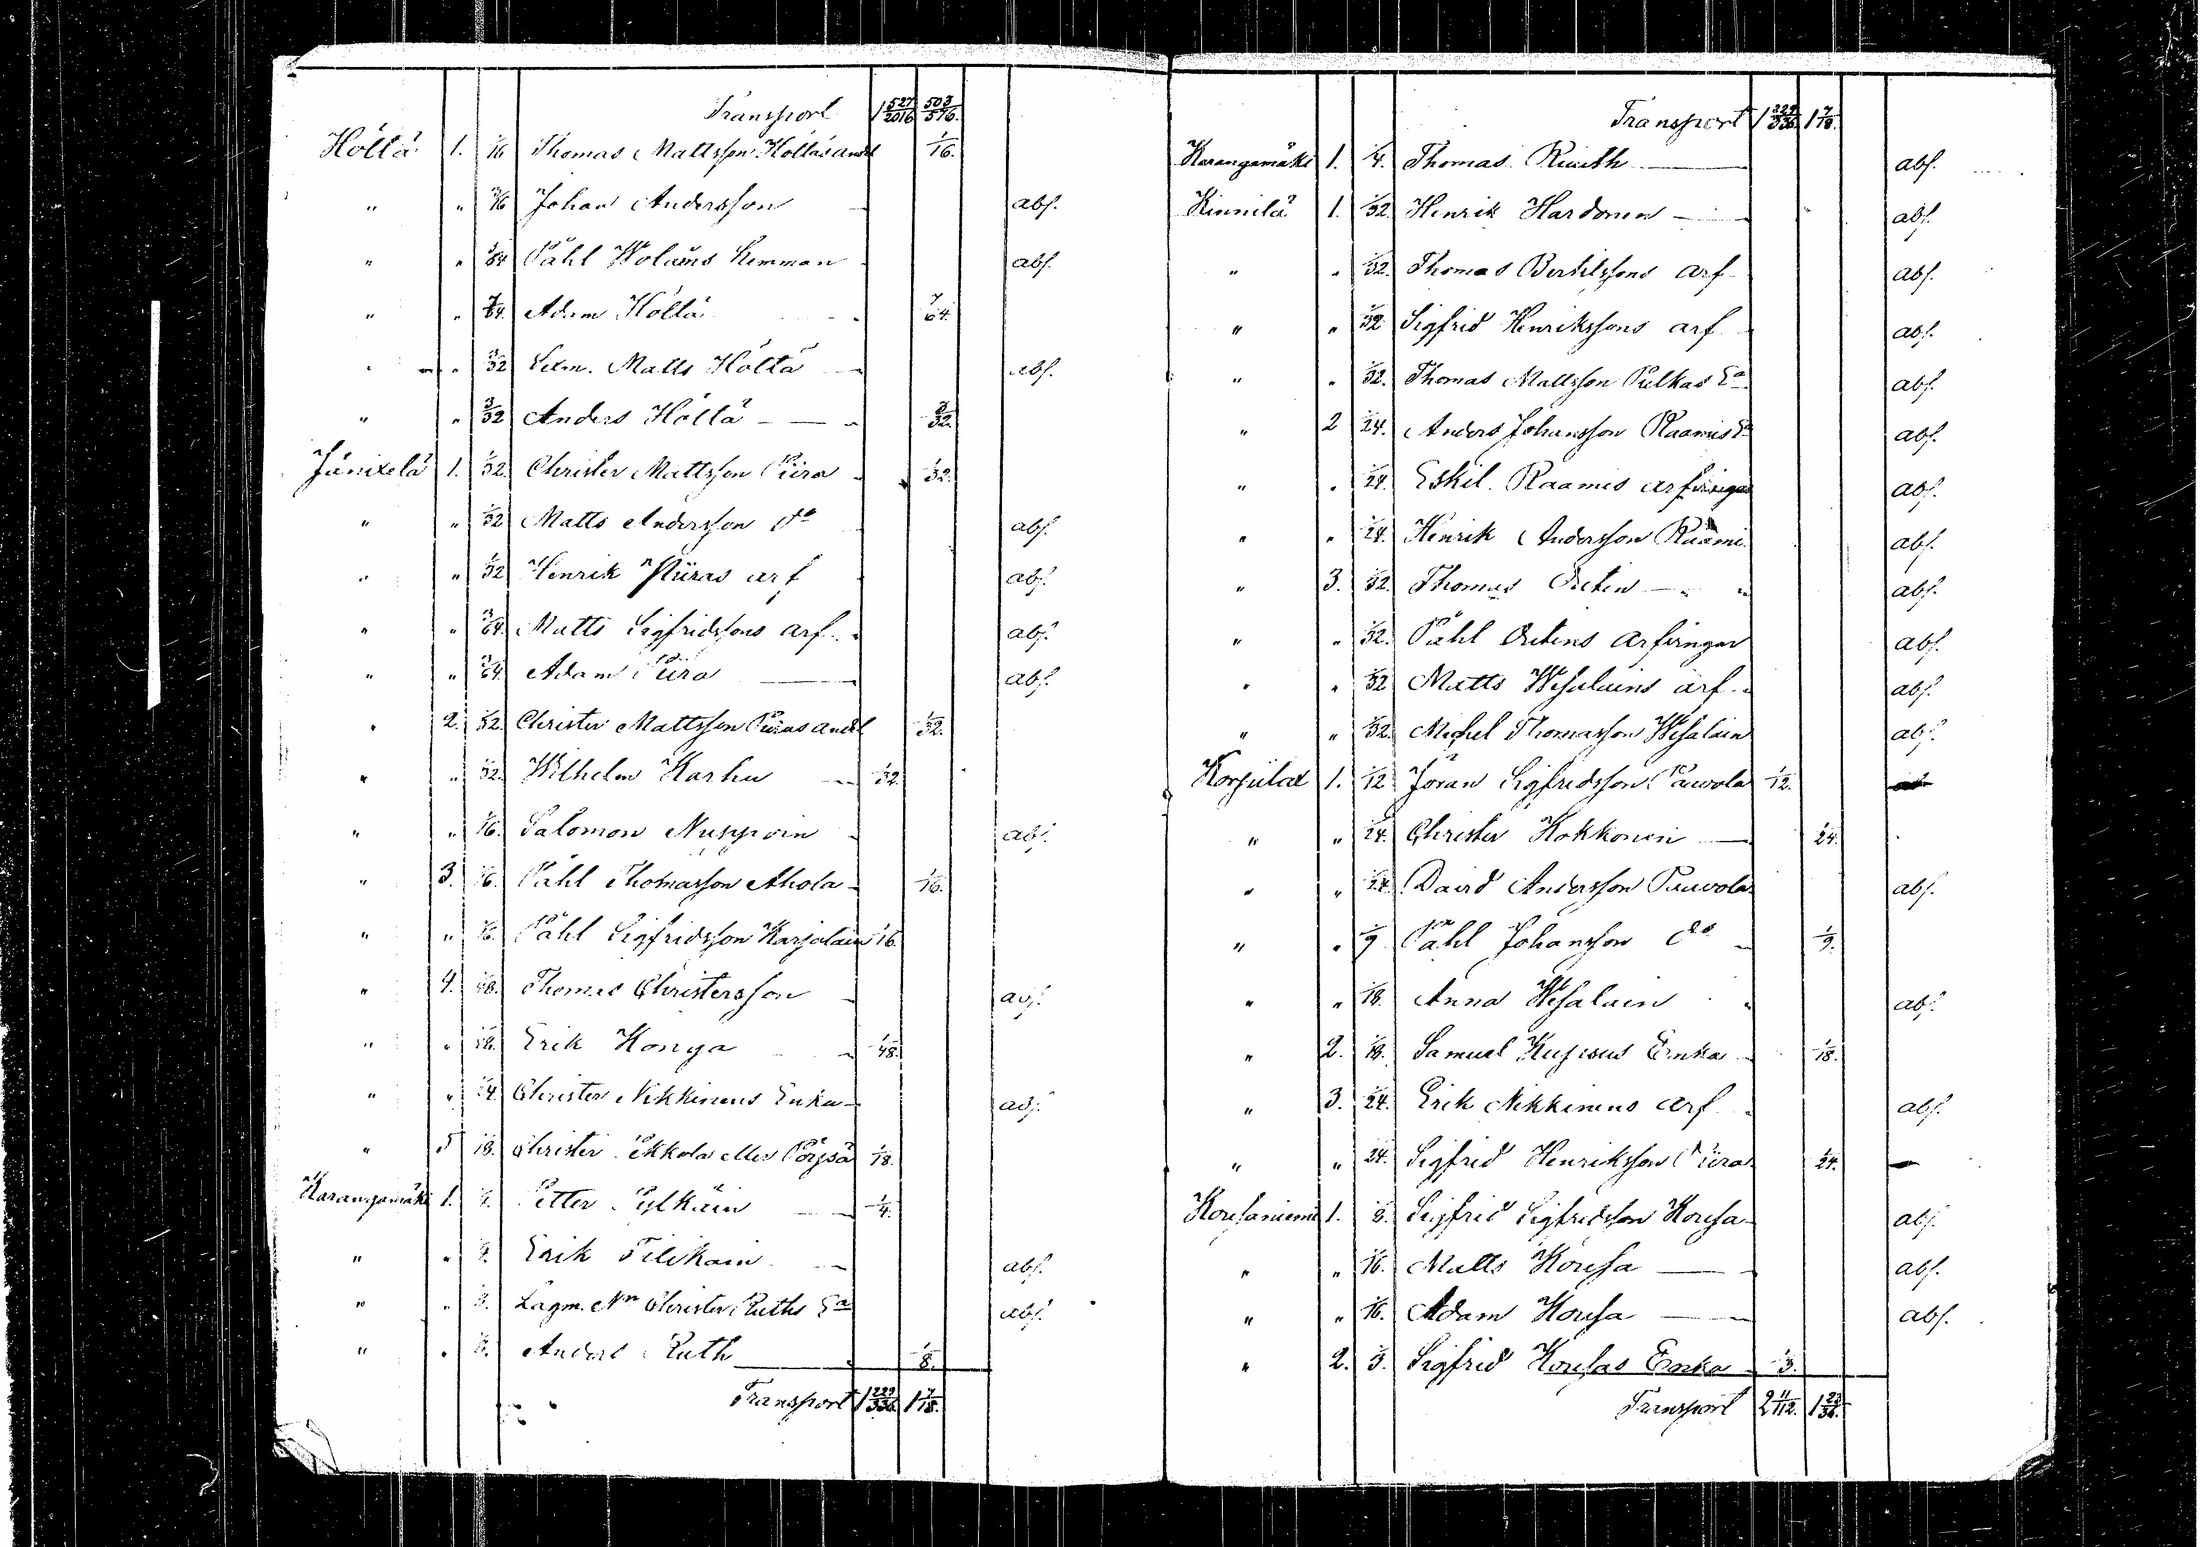 Transport 1 527/2016 503/576.
Höltä 1. 1/16 Thomas Mattsson Höltäs andel 1/16.
" " 3/16 Johan Andersson abs.
" " 1/64 Påhl Wolains Kemman abs.
" " 7/64. Adam Höltä 7/64.
" " 3/32 Lexm. Matts Höltä abs.
" " 3/32 Anders Höltä 3/32.
Jänixelä 1. 1/32. Christer Mattsson Piira 1/32.
" " 1/32 Matts Andersson do abs.
" " 1/32 Henrik Piiras arf abs.
" " 3/64. Matts Sigfridssons arf abs.
" " 3/64. Adam Piira abs.
" 2. 1/32. Christer Mattsson Piiras andel 1/32.
" " 1/32. Wilhelm Karhu 1/32.
" " 1/16. Salomon Nuppoin abs.
" 3. 1/16. Påhl Thomasson Ahola 1/16.
" " 1/16. Påhl Sigfridsson Karjalain 1/16
" 4. 1/48. Thomas Christersson abs.
" " 1/48. Erik Konga 1/48.
" " 1/24 Christer Nikkinens Enka abs.
" 5 1/18. Christer Pekkola eller Pörssä 1/18.
Karangamäki 1. 1/4. Petter Pylkäin 1/4.
" " Erik Pilikain abs.
" " 1/8. Lagm. Nn Christer Ruths Ea abs.
" " 1/8. Anders Ruth 1/8.
Transport 1 229/336. 1 7/18.
Transport 1 229/336. 1 7/18.
Karangamäki 1. 1/4. Thomas Ruuth abs.
Kinnilä 1. 1/32. Henrik Hardonen abs.
" " 1/32. Thomas Bertilssons arf abs.
" " 1/32 Sigfrid Henrikssons arf abs.
" " 1/32. Thomas Mattsson Pulkas Ea abs.
" 2 1/24. Anders Johansson Raamis Ea abs.
" " 1/24. Eskil Raamis arfvingar abs.
" " 1/24. Henrik Andersson Raami abs.
" 3. 1/32. Thomas Oreten abs.
" " 1/32. Påhl Oretens arfvingar abs.
" " 1/32 Matts Wesalains arf abs.
" " 1/32. Michel Thomasson Wesalain abs.
Korpilax 1. 1/12 Jöran Sigfredsson Pauvola 1/12.
" " 1/24. Christer Kokkonen 1/24.
" " 1/24. David Andersson Pauvola abs.
" " 1/9 Påhl Johansson do 1/9.
" " 1/18. Anna Wesalain abs.
" 2. 1/18. Samuel Kupsus Enka 1/18.
" 3. 1/24. Erik Nikkinens arf abs.
" " 1/24. Sigfrid Henriksson Piira 1/24.
Kousaniemi 1. 1/8. Sigfrid Sigfridsson Kousa abs.
" " 1/16. Matts Kousa abs.
" " 1/16. Adam Kousa abs.
" 2. 1/3. Sigfrid Kousas Enka 1/3.
Transport 2 11/112. 1 23/36.